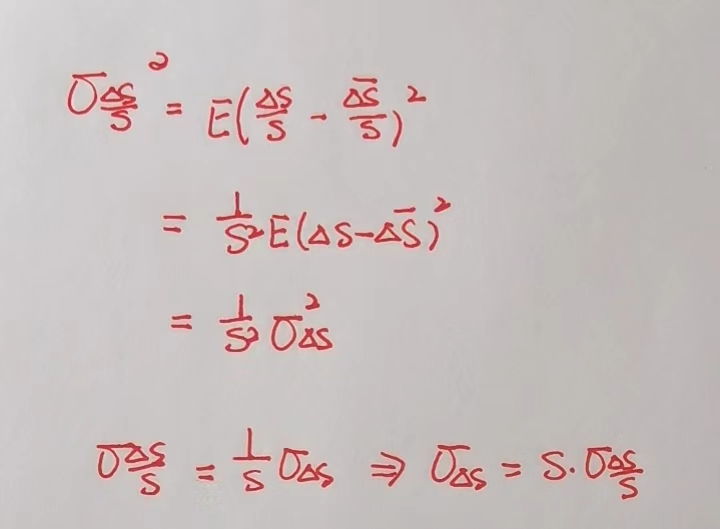 σ_{ΔS/S}² = E(ΔS/S - \overline{ΔS}/S)²
= 1/S² E(ΔS-Δ\overline{S})²
= 1/S² σ²_{ΔS}
σ_{ΔS/S} = 1/S σ_{ΔS} ⇒ σ_{ΔS} = S·σ_{ΔS/S}